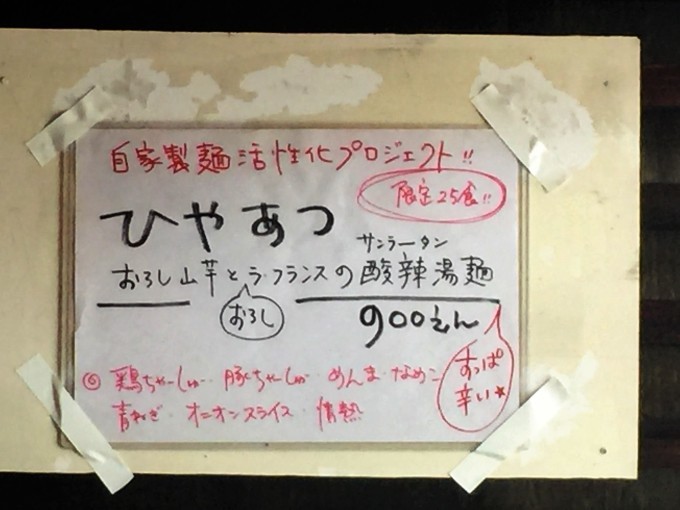 自家製麺活性化プロジェクト!!
限定25食!!
ひやあつ
サンラータン
おろし山芋とラ・フランスの酸辣湯麺
おろし
900えん
すっぱ
辛い☆
◎鶏ちゃーしゅー・豚ちゃーしゅー・めんま・なめこ
青ねぎ・オニオンスライス・情熱